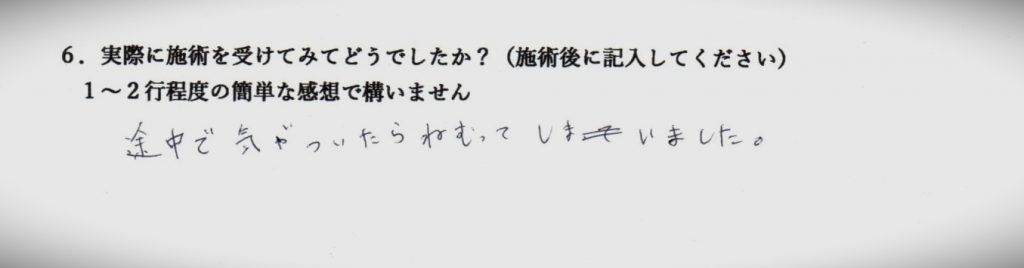 6．実際に施術を受けてみてどうでしたか？（施術後に記入してください）
1～2行程度の簡単な感想で構いません
途中で気がついたらねむってしまいました。